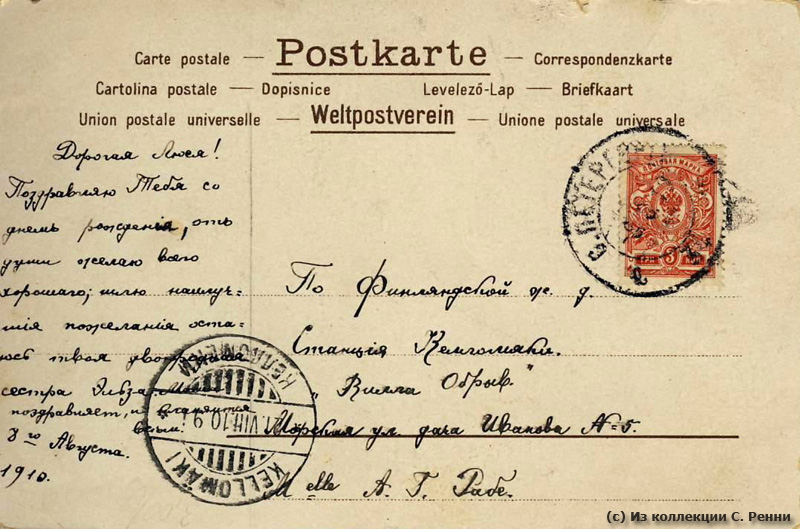 Carte postale — Postkarte — Correspondenzkarte
Cartolina postale — Dopisnice Levelező-Lap — Briefkaart
Union postale universelle — Weltpostverein — Unione postale universale
Дорогая Люся!
Поздравляю Тебя со
днемъ рожденія, отъ
души желаю всего
хорошаго; шлю наилуч-
шія пожеланія оста-
юсь твоя двоюродная
сестра Эльза.
поздравляет, и кланяется
всѣмъ.
8го Августа.
1910.
По Финляндской ж. д.
Станція Келломяки.
"Вилла Обрыв"
Морская ул. дача Иванова № 5.
Melle А. Г. Рабе.
С.ПЕТЕРБ
3
КЕЛЛОМЯКИ
VIII.10.9
KELLOMÄKI
(c) Из коллекции С. Ренни